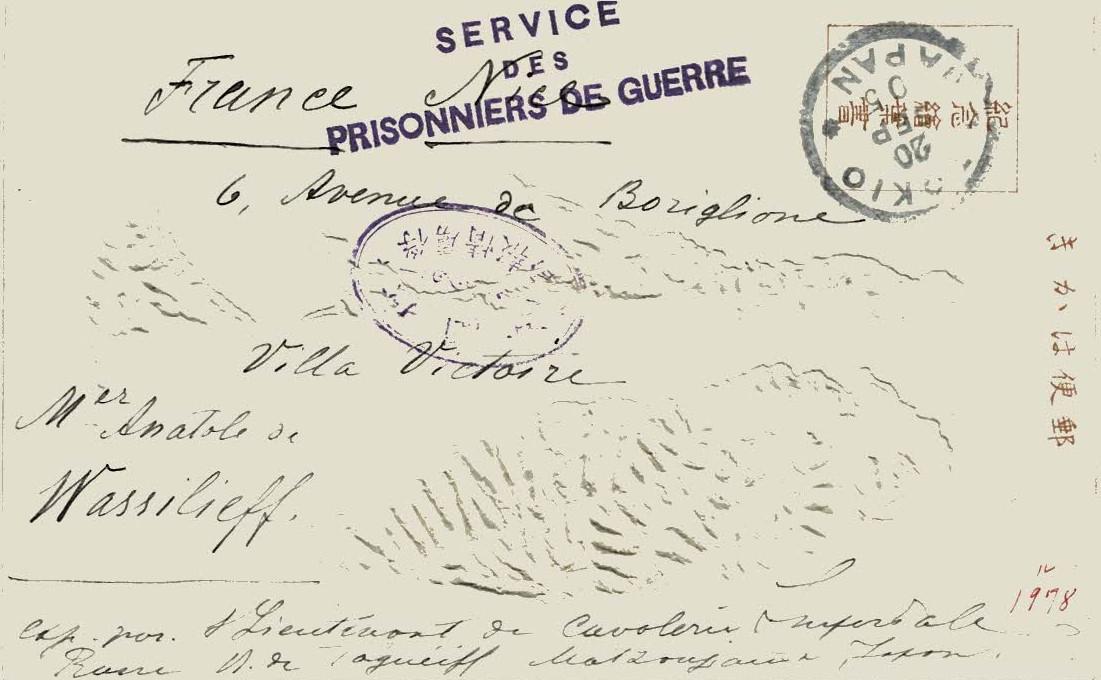 SERVICE
DES
PRISONNIERS DE GUERRE
France Nice
TOKIO JAPAN
20 SEP 05
紀念繪葉書
6, Avenue de Boriglione
きかは便郵
Villa Victoire
Mer Anatole de
Wassilieff.
1978
exp. par. S/Lieutenant de Cavalerie Imperiale
Russe Japon.